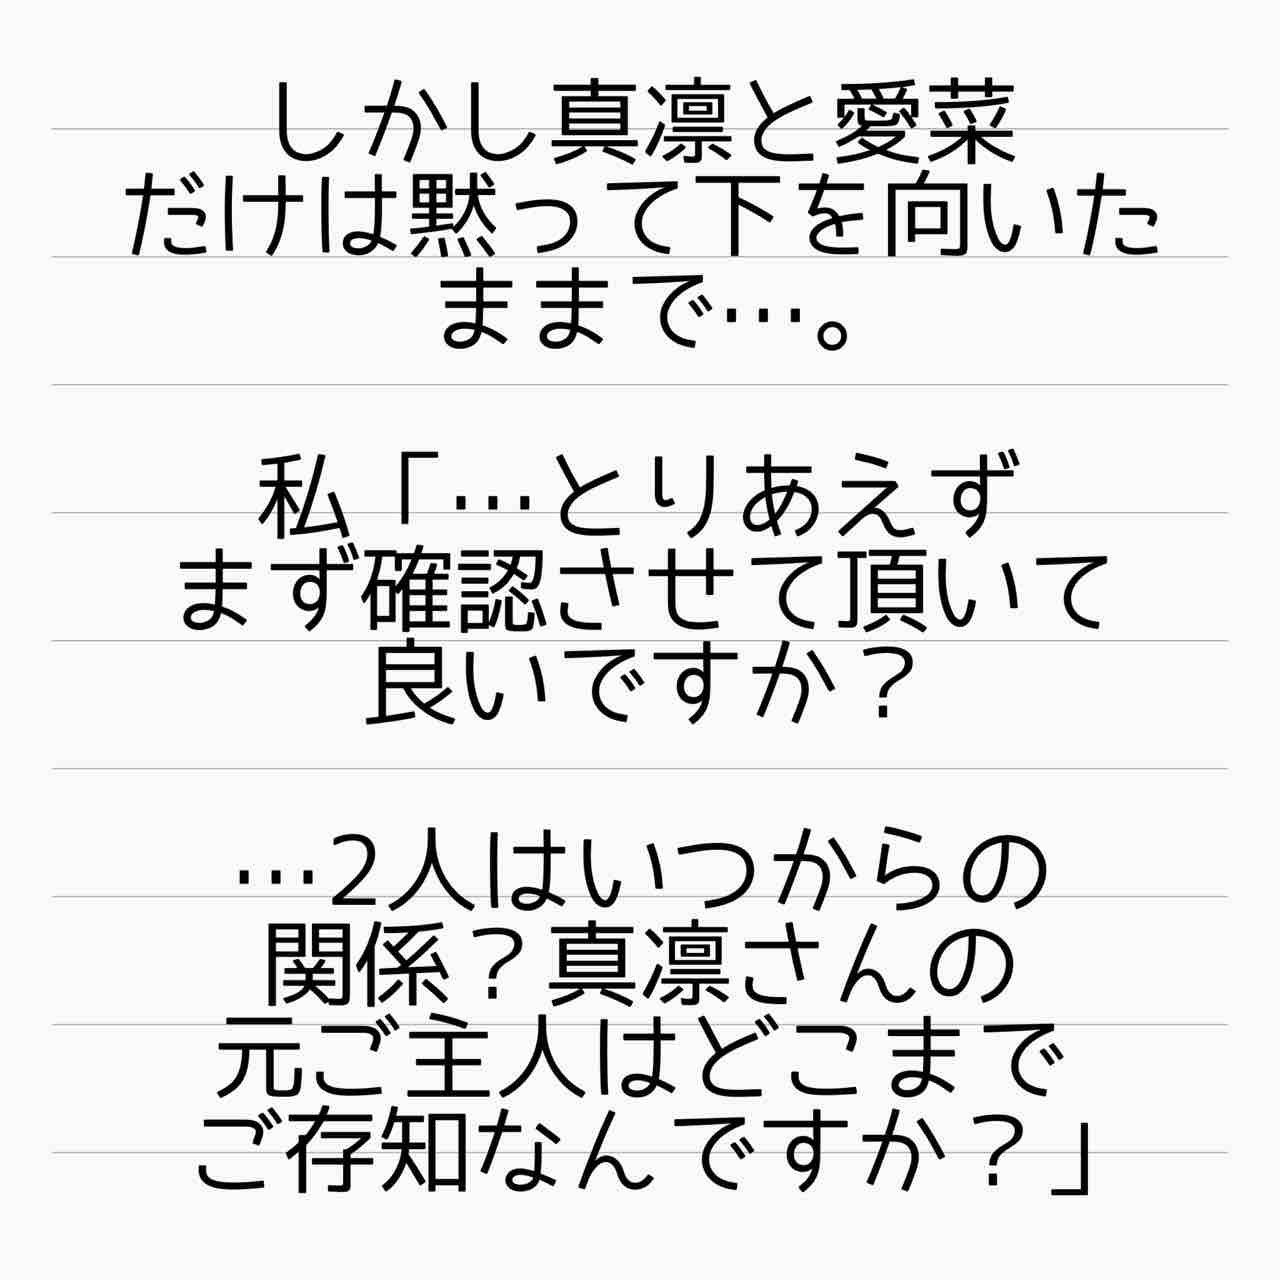 しかし真凛と愛菜
だけは黙って下を向いた
ままで…。
私「…とりあえず
まず確認させて頂いて
良いですか？
…2人はいつからの
関係？真凛さんの
元ご主人はどこまで
ご存知なんですか？」